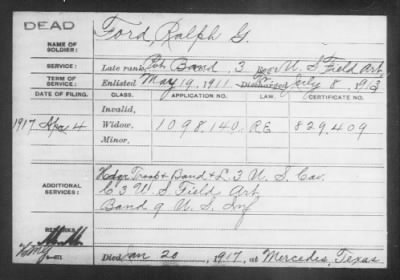 DEAD
NAME OF SOLDIER: Ford, Ralph G.
SERVICE: Late rank, Pvt. Band, 3 Regt U. S. Field Art.
TERM OF SERVICE: Enlisted May 19, 1911 Discharged July 8, 1913
DATE OF FILING. CLASS. APPLICATION NO. LAW. CERTIFICATE NO.
Invalid,
1917 Apr. 4 Widow, 1098,140. RE 829,409
Minor,
ADDITIONAL SERVICES: Hdqr Troop & Band & L. 3 U. S. Cav.
C 3 U. S. Field Art
Band 9 U. S. Inf
REMARKS
Died Jan 20, 1917, at Mercedes, Texas.